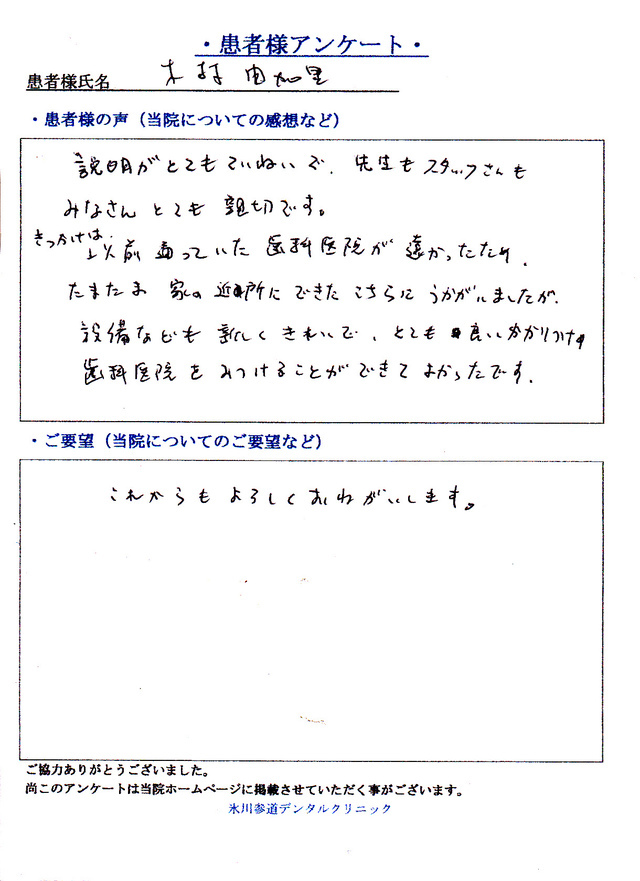 ・患者様アンケート・
患者様氏名 木村 由加里
・患者様の声（当院についての感想など）
説明がとてもていねいで、先生もスタッフさんも
みなさんとても親切です。
きっかけは、以前通っていた歯科医院が遠かったため、
たまたま家の近所にできたこちらにうかがいましたが、
設備なども新しくきれいで、とても良いかかりつけ
歯科医院をみつけることができてよかったです。
・ご要望（当院についてのご要望など）
これからもよろしくおねがいします。
ご協力ありがとうございました。
尚このアンケートは当院ホームページに掲載させていただく事がございます。
氷川参道デンタルクリニック